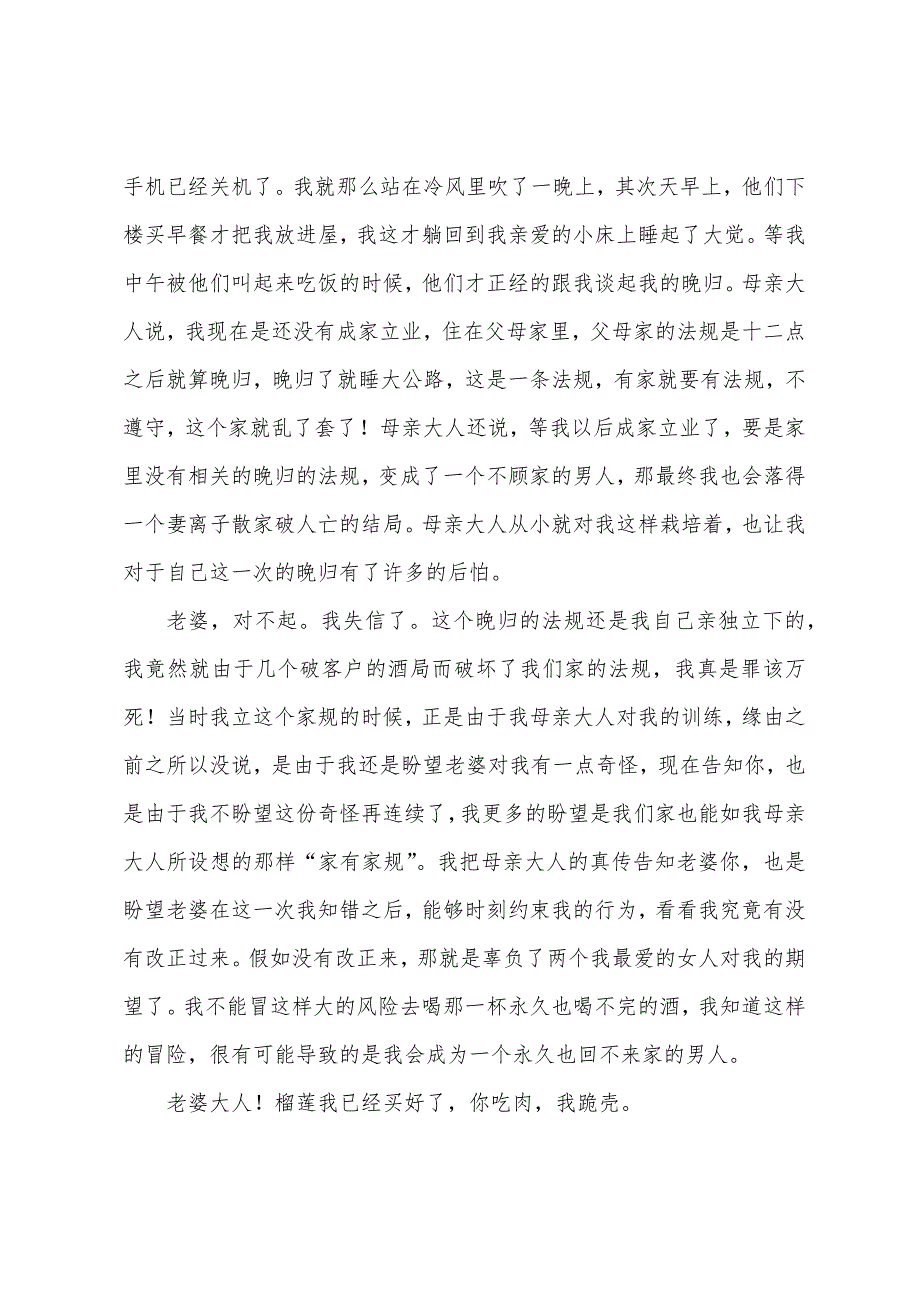 手机已经关机了。我就那么站在冷风里吹了一晚上，其次天早上，他们下
楼买早餐才把我放进屋，我这才躺回到我亲爱的小床上睡起了大觉。等我
中午被他们叫起来吃饭的时候，他们才正经的跟我谈起我的晚归。母亲大
人说，我现在是还没有成家立业，住在父母家里，父母家的法规是十二点
之后就算晚归，晚归了就睡大公路，这是一条法规，有家就要有法规，不
遵守，这个家就乱了套了！母亲大人还说，等我以后成家立业了，要是家
里没有相关的晚归的法规，变成了一个不顾家的男人，那最终我也会落得
一个妻离子散家破人亡的结局。母亲大人从小就对我这样栽培着，也让我
对于自己这一次的晚归有了许多的后怕。
老婆，对不起。我失信了。这个晚归的法规还是我自己亲独立下的，
我竟然就由于几个破客户的酒局而破坏了我们家的法规，我真是罪该万
死！当时我立这个家规的时候，正是由于我母亲大人对我的训练，缘由之
前之所以没说，是由于我还是盼望老婆对我有一点奇怪，现在告知你，也
是由于我不盼望这份奇怪再连续了，我更多的盼望是我们家也能如我母亲
大人所设想的那样“家有家规”。我把母亲大人的真传告知老婆你，也是
盼望老婆在这一次我知错之后，能够时刻约束我的行为，看看我究竟有没
有改正过来。假如没有改正来，那就是辜负了两个我最爱的女人对我的期
望了。我不能冒这样大的风险去喝那一杯永久也喝不完的酒，我知道这样
的冒险，很有可能导致的是我会成为一个永久也回不来家的男人。
老婆大人！榴莲我已经买好了，你吃肉，我跪壳。